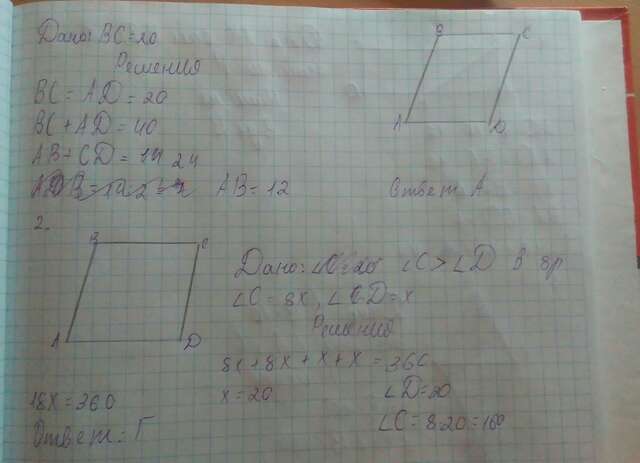 Дано: BC=20
Решения
BC = AD = 20
BC + AD = 40
AB + CD = 24
AB = 12
B C
A D
Ответ А
2.
B C
A D
Дано: ∠C > ∠D в 8р
∠C = 8x, ∠D = x
Решения
8x + 8x + x + x = 360
18x = 360
x = 20
∠D = 20
∠C = 8·20 = 160
Ответ: Г